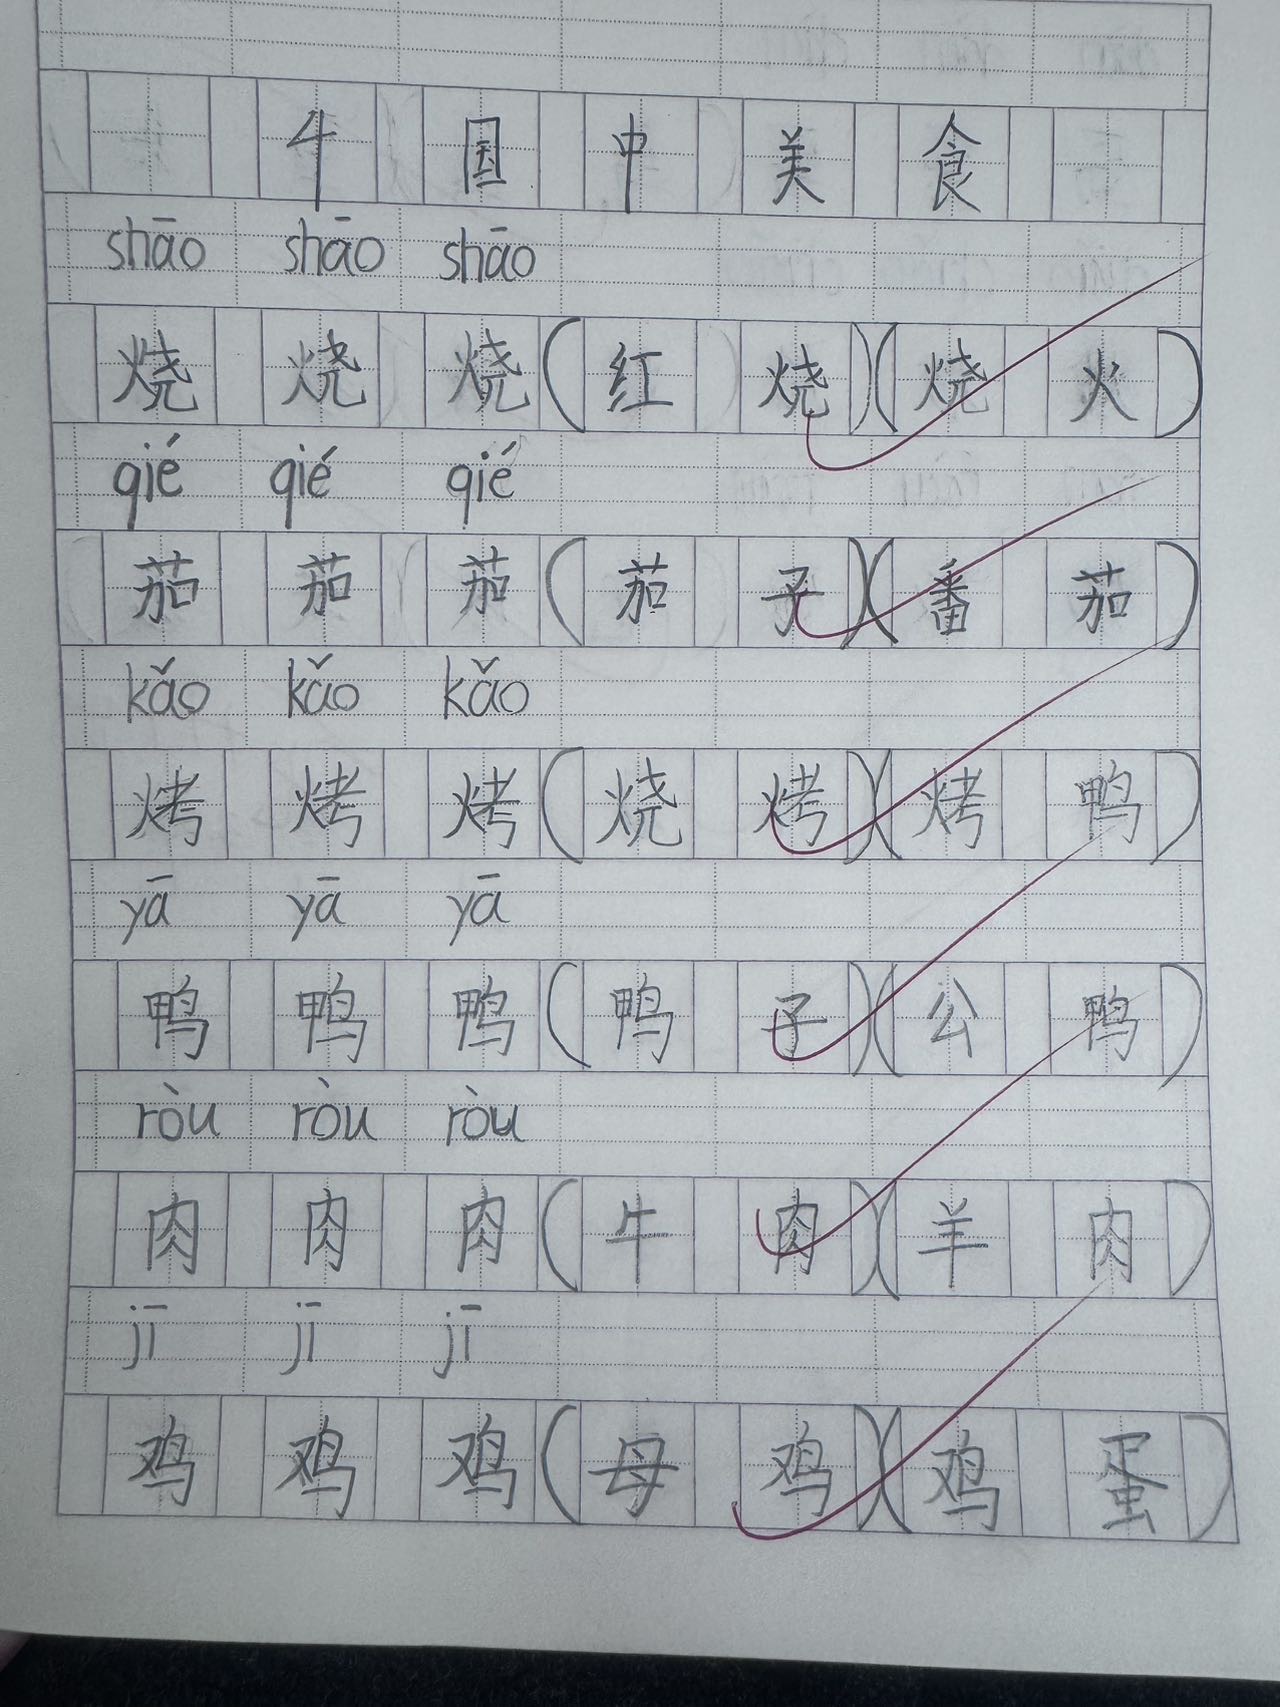 4国中美食
shāo shāo shāo
烧烧烧(红烧)(烧火)
qié qié qié
茄茄茄(茄子)(番茄)
kǎo kǎo kǎo
烤烤烤(烧烤)(烤鸭)
yā yā yā
鸭鸭鸭(鸭子)(公鸭)
ròu ròu ròu
肉肉肉(牛肉)(羊肉)
jī jī jī
鸡鸡鸡(母鸡)(鸡蛋)